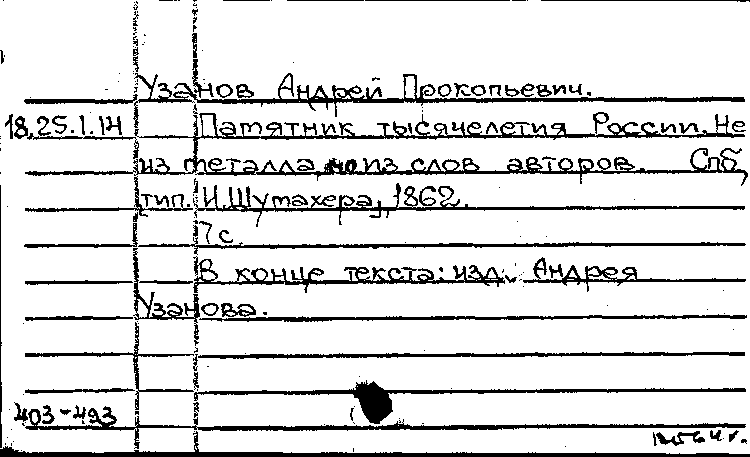 Узанов, Андрей Прокопьевич.
18.25.1.14 Памятник тысячелетия России. Не
из металла, но из слов авторов. Спб,
[тип. И. Шумахера], 1862.
7 с.
В конце текста: изд. Андрея
Узанова.
403-493